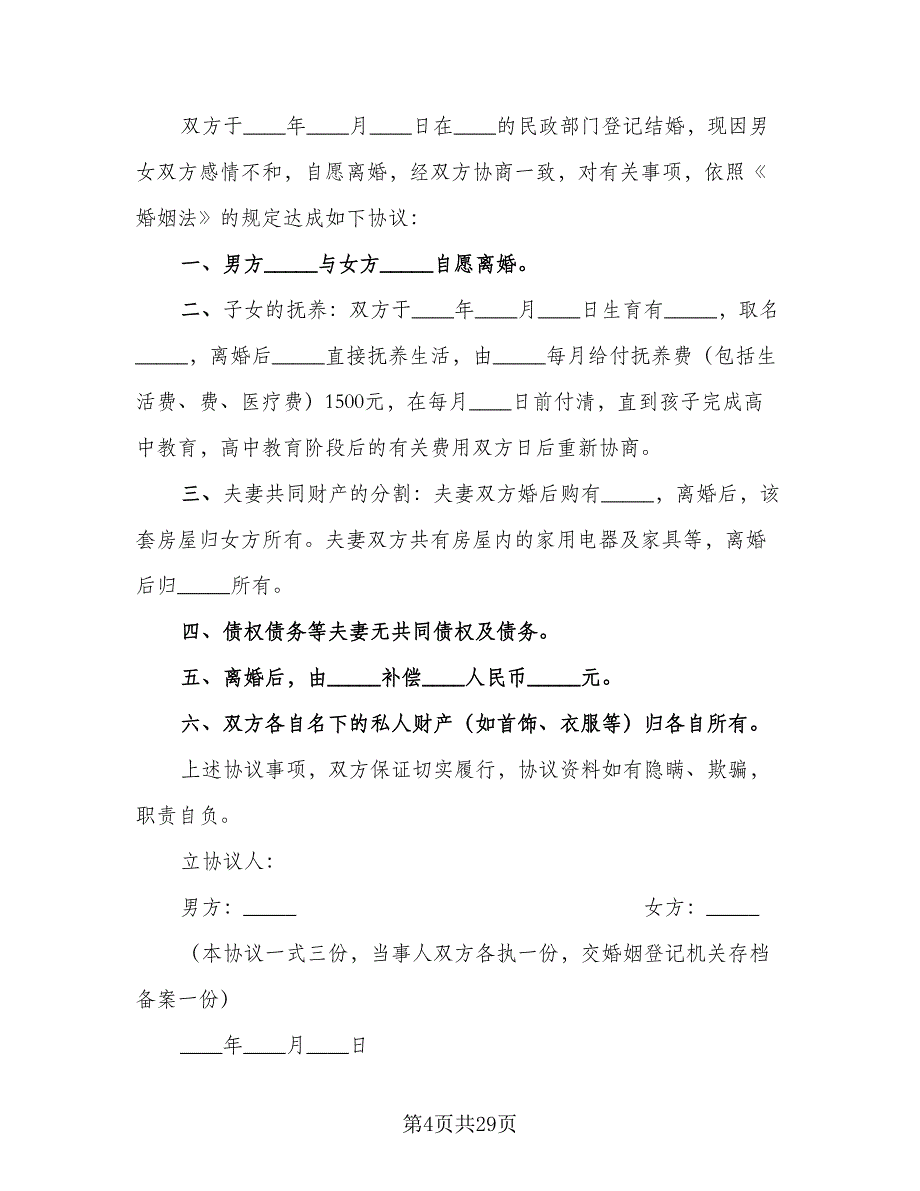 双方于____年____月____日在____的民政部门登记结婚，现因男
女双方感情不和，自愿离婚，经双方协商一致，对有关事项，依照《
婚姻法》的规定达成如下协议：
一、男方_____与女方_____自愿离婚。
二、子女的抚养：双方于____年____月____日生育有_____，取名
_____，离婚后_____直接抚养生活，由_____每月给付抚养费（包括生
活费、费、医疗费）1500元，在每月____日前付清，直到孩子完成高
中教育，高中教育阶段后的有关费用双方日后重新协商。
三、夫妻共同财产的分割：夫妻双方婚后购有_____，离婚后，该
套房屋归女方所有。夫妻双方共有房屋内的家用电器及家具等，离婚
后归_____所有。
四、债权债务等夫妻无共同债权及债务。
五、离婚后，由_____补偿____人民币_____元。
六、双方各自名下的私人财产（如首饰、衣服等）归各自所有。
上述协议事项，双方保证切实履行，协议资料如有隐瞒、欺骗，
职责自负。
立协议人：
男方：_____ 女方：_____
（本协议一式三份，当事人双方各执一份，交婚姻登记机关存档
备案一份）
____年____月____日
第4页共29页